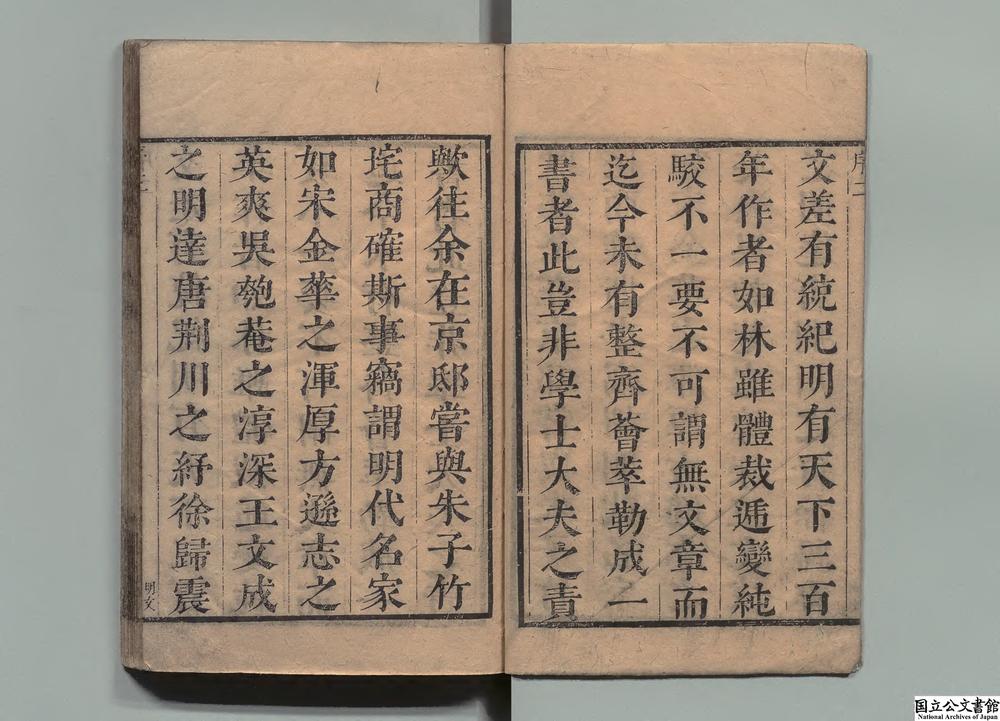 序二
文差有統紀明有天下三百
年作者如林雖體裁遞變純
駁不一要不可謂無文章而
迄今未有整齊薈萃勒成一
書者此豈非學士大夫之責
歟往余在京邸嘗與朱子竹
垞商確斯事竊謂明代名家
如宋金華之渾厚方遜志之
英爽吳匏菴之淳深王文成
之明達唐荆川之紆徐歸震
明文
国立公文書館
National Archives of Japan